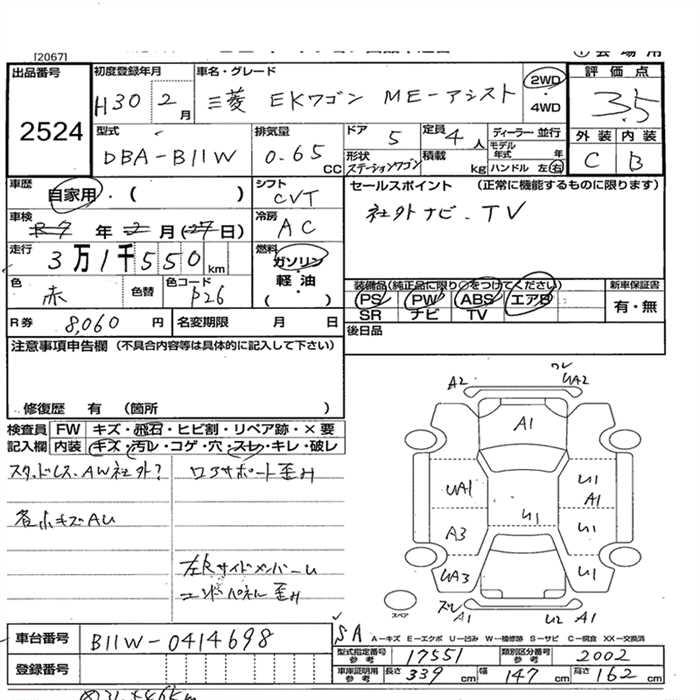 [2067]
出品番号 2524
初度登録年月 H30 2月
車名・グレード 三菱 EKワゴン ME-アシスト
2WD ・ 4WD
評価点 3.5
外装 内装
C B
型式 DBA-B11W
排気量 0.65 CC
ドア 5
定員 4人
形状 ステーションワゴン
積載 kg
ディーラー・並行
モデル年式 年
ハンドル 左・右
車歴 自家用・( )
シフト CVT
セールスポイント (正常に機能するものに限ります)
社外ナビ. TV
車検 R7年2月(27日)
冷房 AC
走行 3万1千550km
燃料 ガソリン・軽油 ( ・ )
色 赤
色替
色コード P26
装備品(純正品に限り○をつけてください)
PS PW ABS エアB
SR ナビ TV
新車保証書 有・無
R券 8,060円
名変期限 月 日
後日品
注意事項申告欄 (不具合内容等は具体的に記入して下さい)
修復歴 有 (箇所 )
検査員記入欄
FW キズ・飛石・ヒビ割・リペア跡・×要
内装 キズ・汚レ・コゲ・穴・スレ・キレ・破レ
スタッドレス.AW社外?
コアサポート歪み
各所キズAU
左Rサイドメンバーu
エンドパネル歪み
A2 UA2
A1
UA1 U1 A1
A3 U1 U1
UA3 U1
A1 U2 A1
スペア
A-キズ E-エクボ U-凹み W-補修跡 S-サビ C-腐食 XX-交換済
車台番号 B11W-0414698
型式指定番号 参考 17551
類別区分番号 参考 2002
登録番号
車庫証明用 参考 長さ 339 cm 幅 147 cm 高さ 162 cm